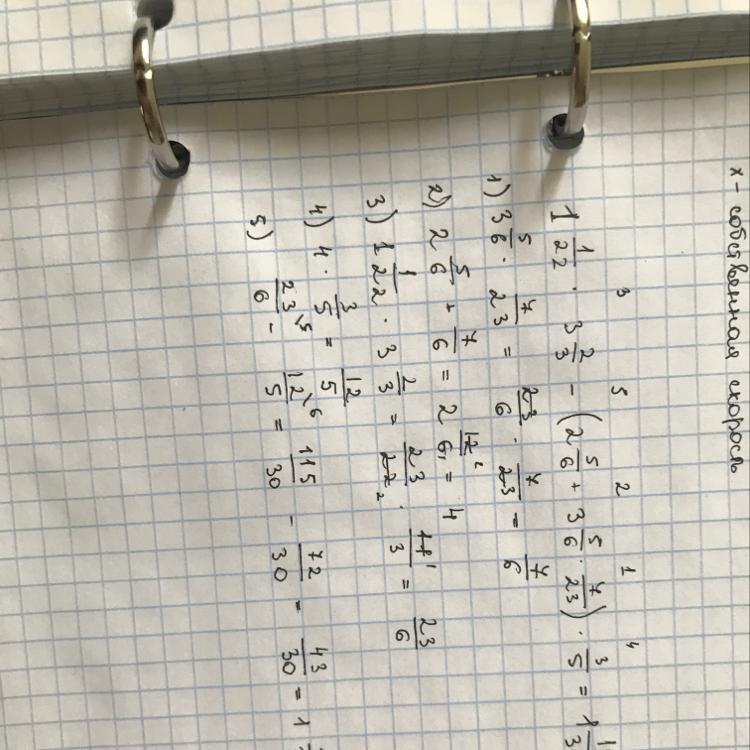 x - собственная скорость
3 5 2 1 4
1 1/22 · 3 2/3 - (2 5/6 + 3 5/6 · 7/23) · 3/5 = 1 1/3
1) 3 5/6 · 7/23 = 23/6 · 7/23 = 7/6
2) 2 5/6 + 7/6 = 2 12/6 = 4
3) 1 1/22 · 3 2/3 = 23/22 · 11/3 = 23/6
4) 4 · 3/5 = 12/5
5) 23/6 - 12/5 = 115/30 - 72/30 = 43/30 = 1